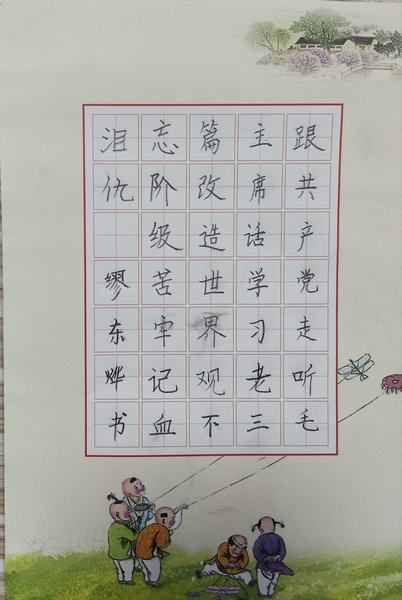 跟共产党走听毛
主席话学习老三
篇改造世界观不
忘阶级苦牢记血
泪仇 缪东烨书